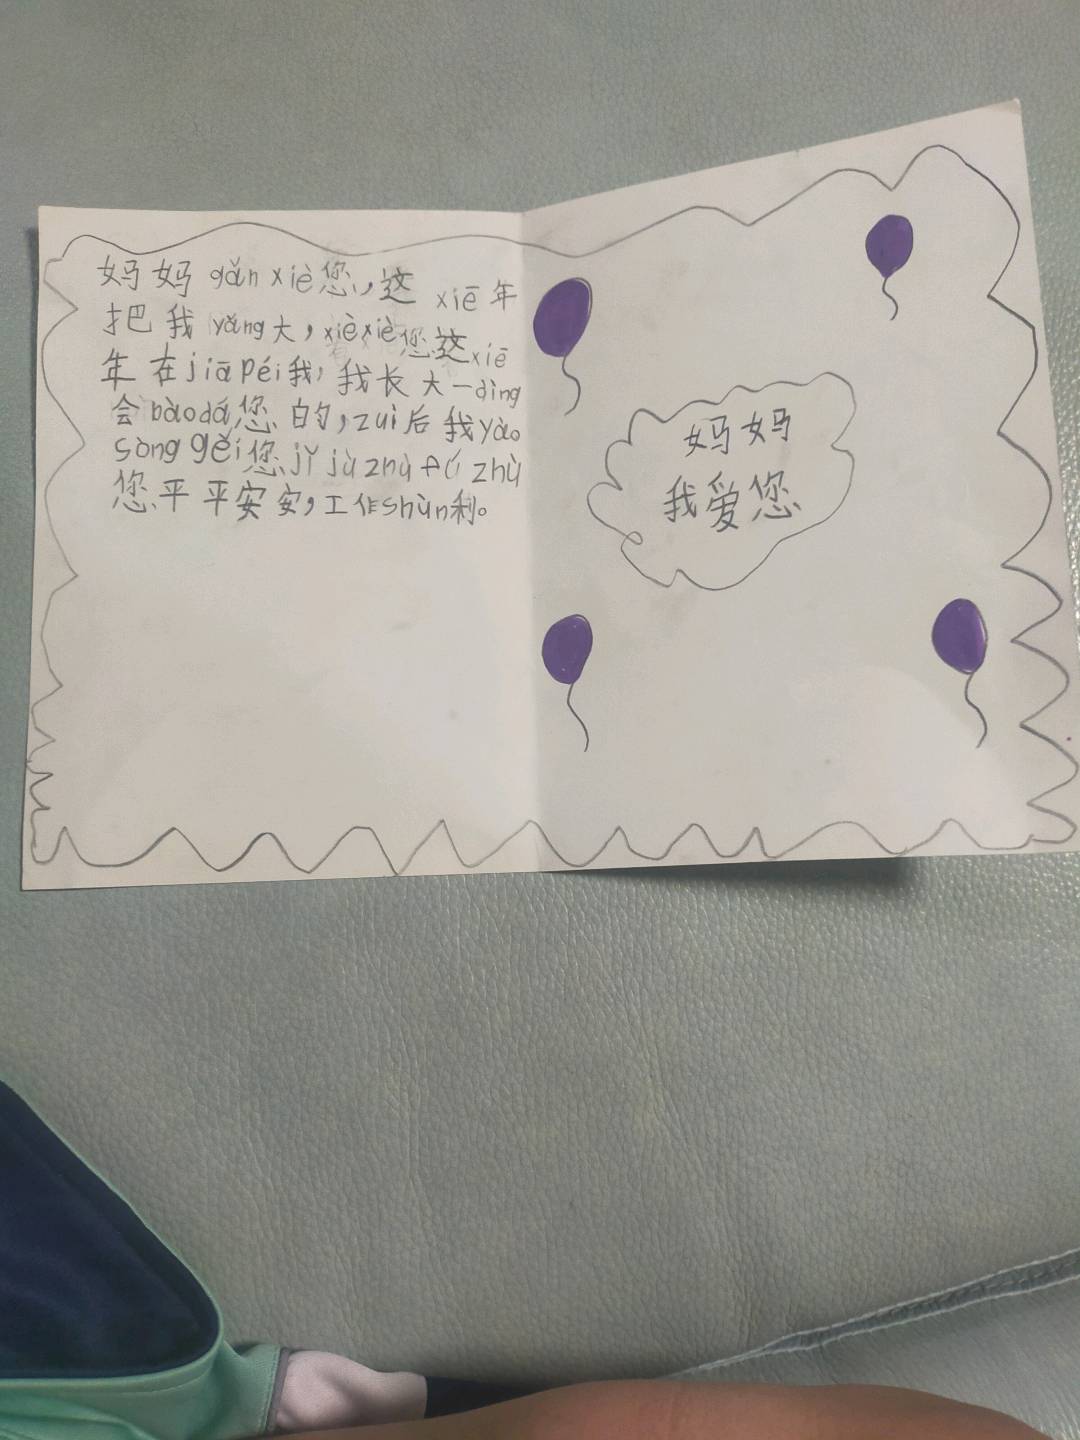 妈妈gǎn xiè您,这 xiē 年
把我 yǎng大,xièxiè您这xiē
年在jiā péi我,我长大一dìng
会bàodá您的,zuì后我yào
sòng gěi您jǐ jù zhù fú zhù
您平平安安,工作shùn利。
妈妈
我爱您